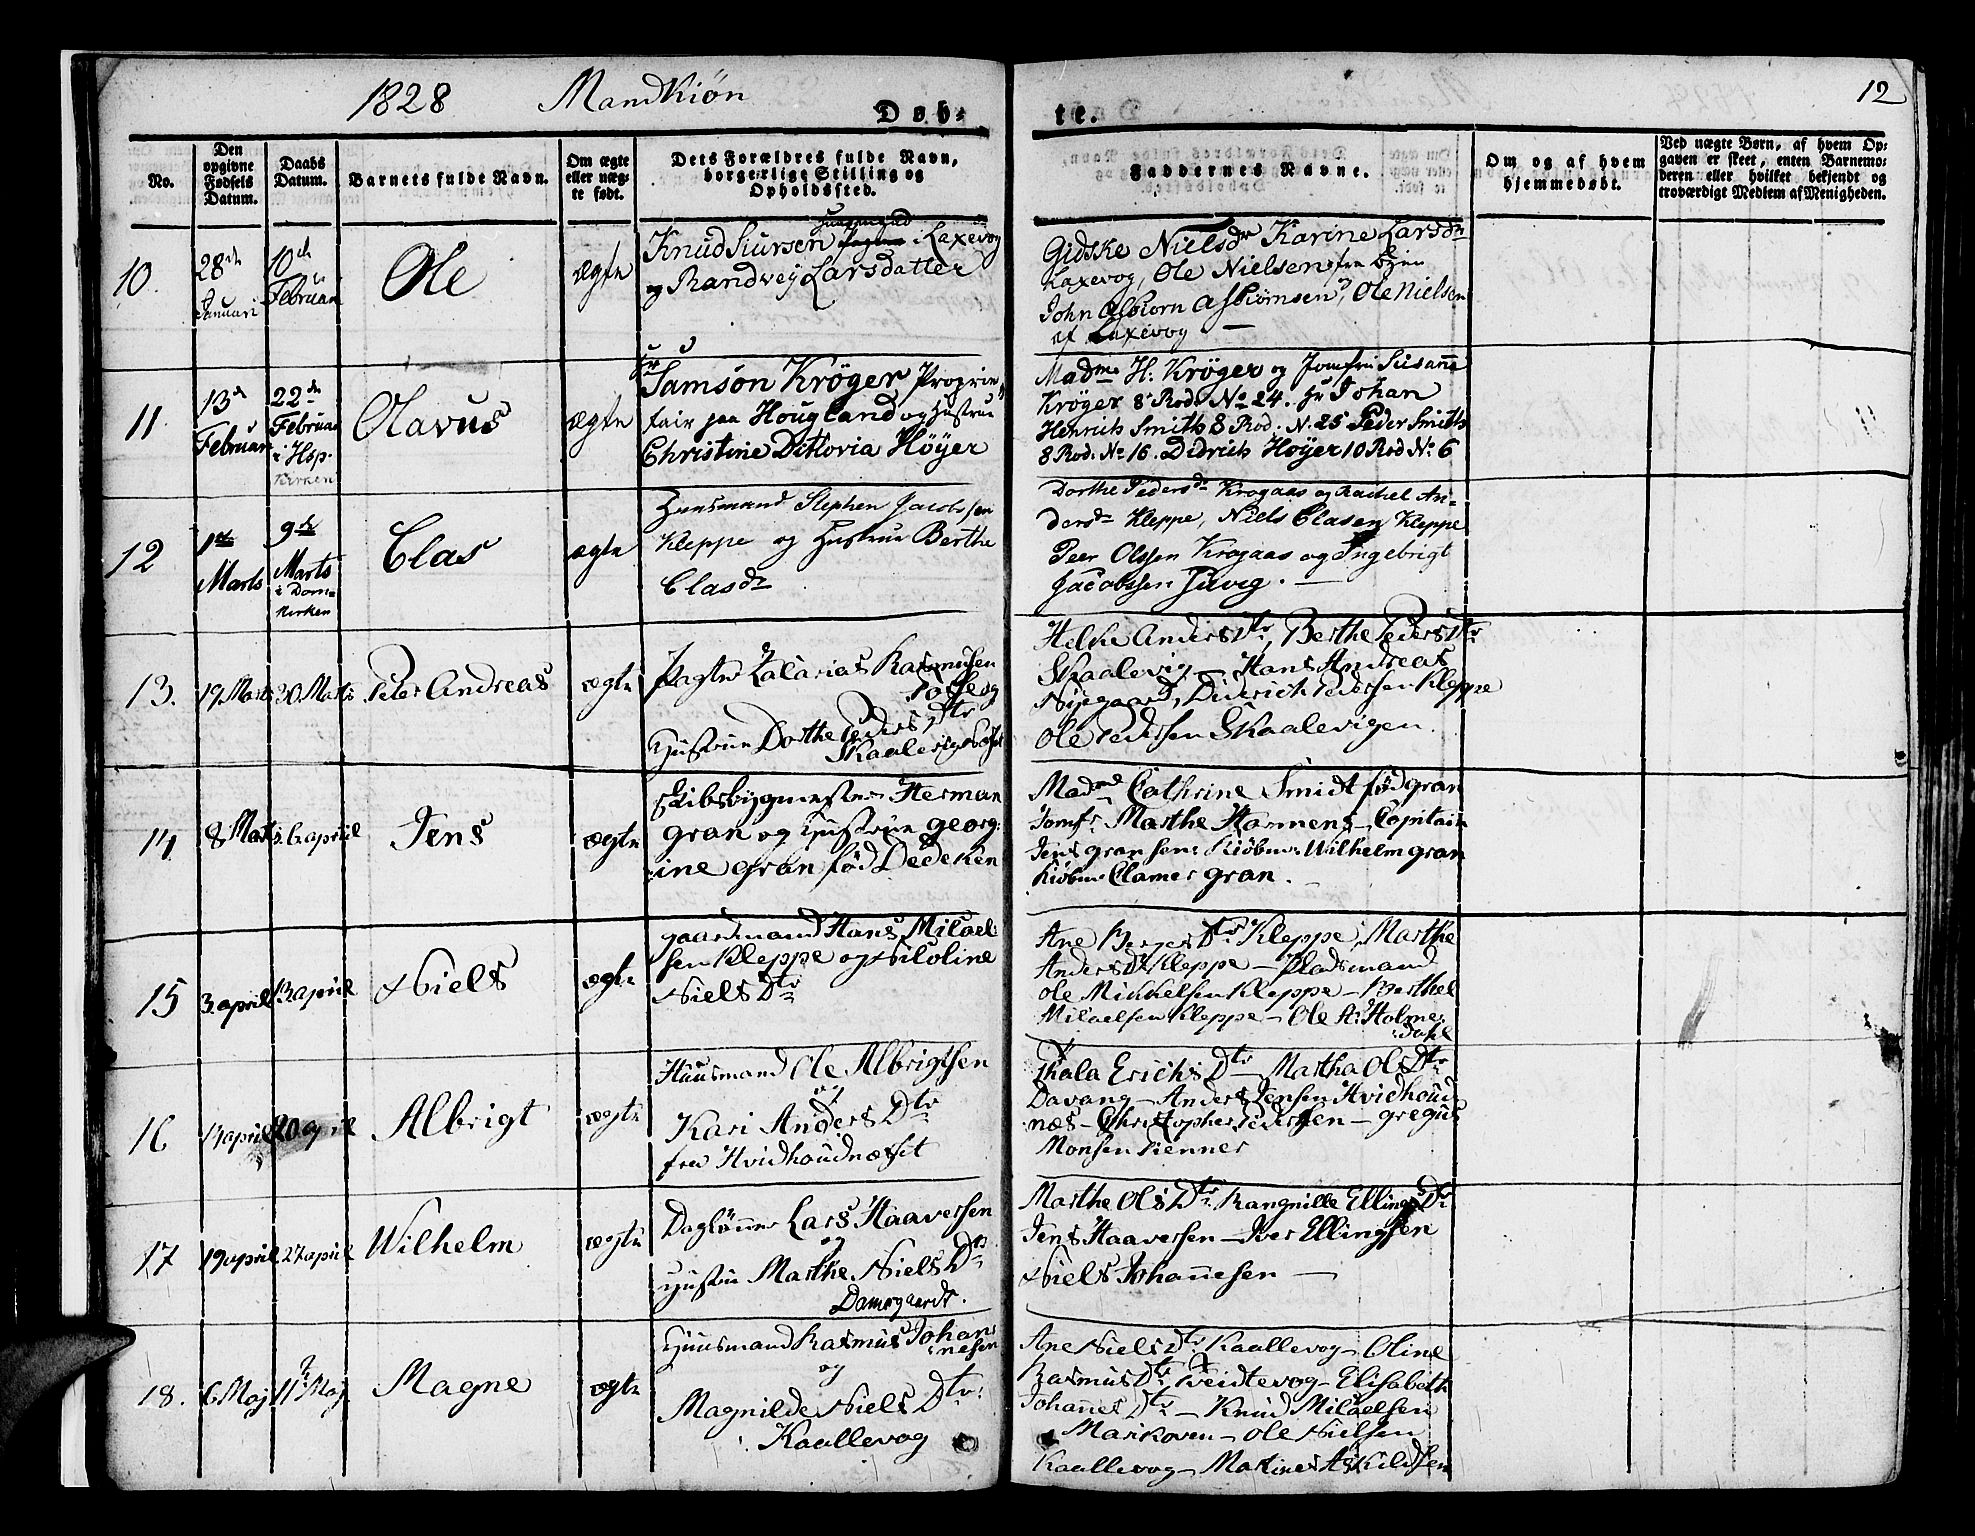 1828 Mandkiøn
Døb-
te.
12
No.
Den opgivne Fødsels Datum.
Daabs Datum.
Barnets fulde Navn.
Om ægte eller uægte født.
Dets Forældres fulde Navn, borgerlige Stilling og Opholdssted.
Faddernes Navne.
Om og af hvem hjemmedøbt.
Ved uægte Børn, af hvem Opgaven er skeet, enten Barnemoderen eller hvilket bekjendt og troværdigt Medlem af Menigheden.
10.
28de Januari
10de Februari
Ole
ægte
Knud Iursen Huusmand i Laxevog
og Randvey Larsdatter
Gidske Nielsdr Karine Larsdr
Laxevog, Ole Nielsen fra
John Asbiorn Asbiømsen, Ole Nielsen
af Laxevog —
11
13de Februari
22de Februar i Hsp. Kirken
Olavus
ægte
Hr Samson Krøger Proprie-
tair paa Hougland og Hustrue
Christine Ditlovia Høyer
Madme H: Krøger og Jomfru Susanna
Krøger 8 Rode No 24. Hr Johan
Henrich Smith 8 Rod. N. 25 Peder Smith
8 Rod. No 16. Didrich Høyer 10 Rod No 6
12
1ste Marts
9de Marts i Dom-kirken
Clas
ægte
Huusmand Stephen Jacobssen
Kleppe og Hustrue Berthe
Clasdr
Dorthe Pedersdr Krogaas og Rachel An-
dersdr Kleppe, Niels Clasen Kleppe
Peer Olssen Krogaas og Ingebrigt
Jacobssen —
13.
19 Marts
30 Marts
Peter Andreas
ægte
Pagter Zacarias Rasmusen
Hustrue Dorthe PedersDtr
Skaalevig
Helche AndersDtr, Berthe PedersDtr
Skaalevig — Hans Andreas
Nÿegaard, Diderich Pedersen Kleppe
Ole Pedersen Skaalevigen
14
8 Marts
6 april
Jens
ægte
Skibsbygmester Herman
gran og Hustrue georg-
ine gran fød Dedeken
Madme Cathrine Smidt fød gran
Jomfr Marthe Harmens — Capitain
Jens gran sen: Kiøbm: Wilhelm gran
Kiøbm: Clamer gran.
15
3 april
13 april
Niels
ægte
gaardmand Hans Micael-
sen Kleppe og Nicoline
NielsDtr
Ane BergesDtr Kleppe, Marthe
AndersDt Kleppe — Pladsmand
Ole Mikkelsen Kleppe — Berthel
Micaelsen Kleppe — Ole A: Holme-
dahl
16
april
20 april
Albrigt
ægte
Huusmand Ole Albrigtsen
og
Kari AndersDtr
fra Hvidhoudnæset
ErichsDtr — Martha OlsDtr
Davang — Anders Jensen Hvidhoud-
næs — Christopher Pedersen — gregus
Monsen Rennes
17
19 april
27 april
Wilhelm
ægte
Dagløner Lars Haaversen
og
Hustru Marthe NielsDtr
Damsgaards.
Marthe OlsDtr Rangnille EllingsDtr
Jens Haaversen — Iver Ellingsen
Niels Johannesen —
18.
6 Maj
11 Maj
Magne
ægte
Huusmand Rasmus Johan-
nesen
og
Magnilde NielsDtr
Kaallevog
Ane NielsDtr Kaallevog — Oline
RasmusDtr Tveidtevog — Elisabeth
JohannesDtr — Knud Micaelsen
Markoven — Ole Nielsen
Kaallevog — Martines Askildsen